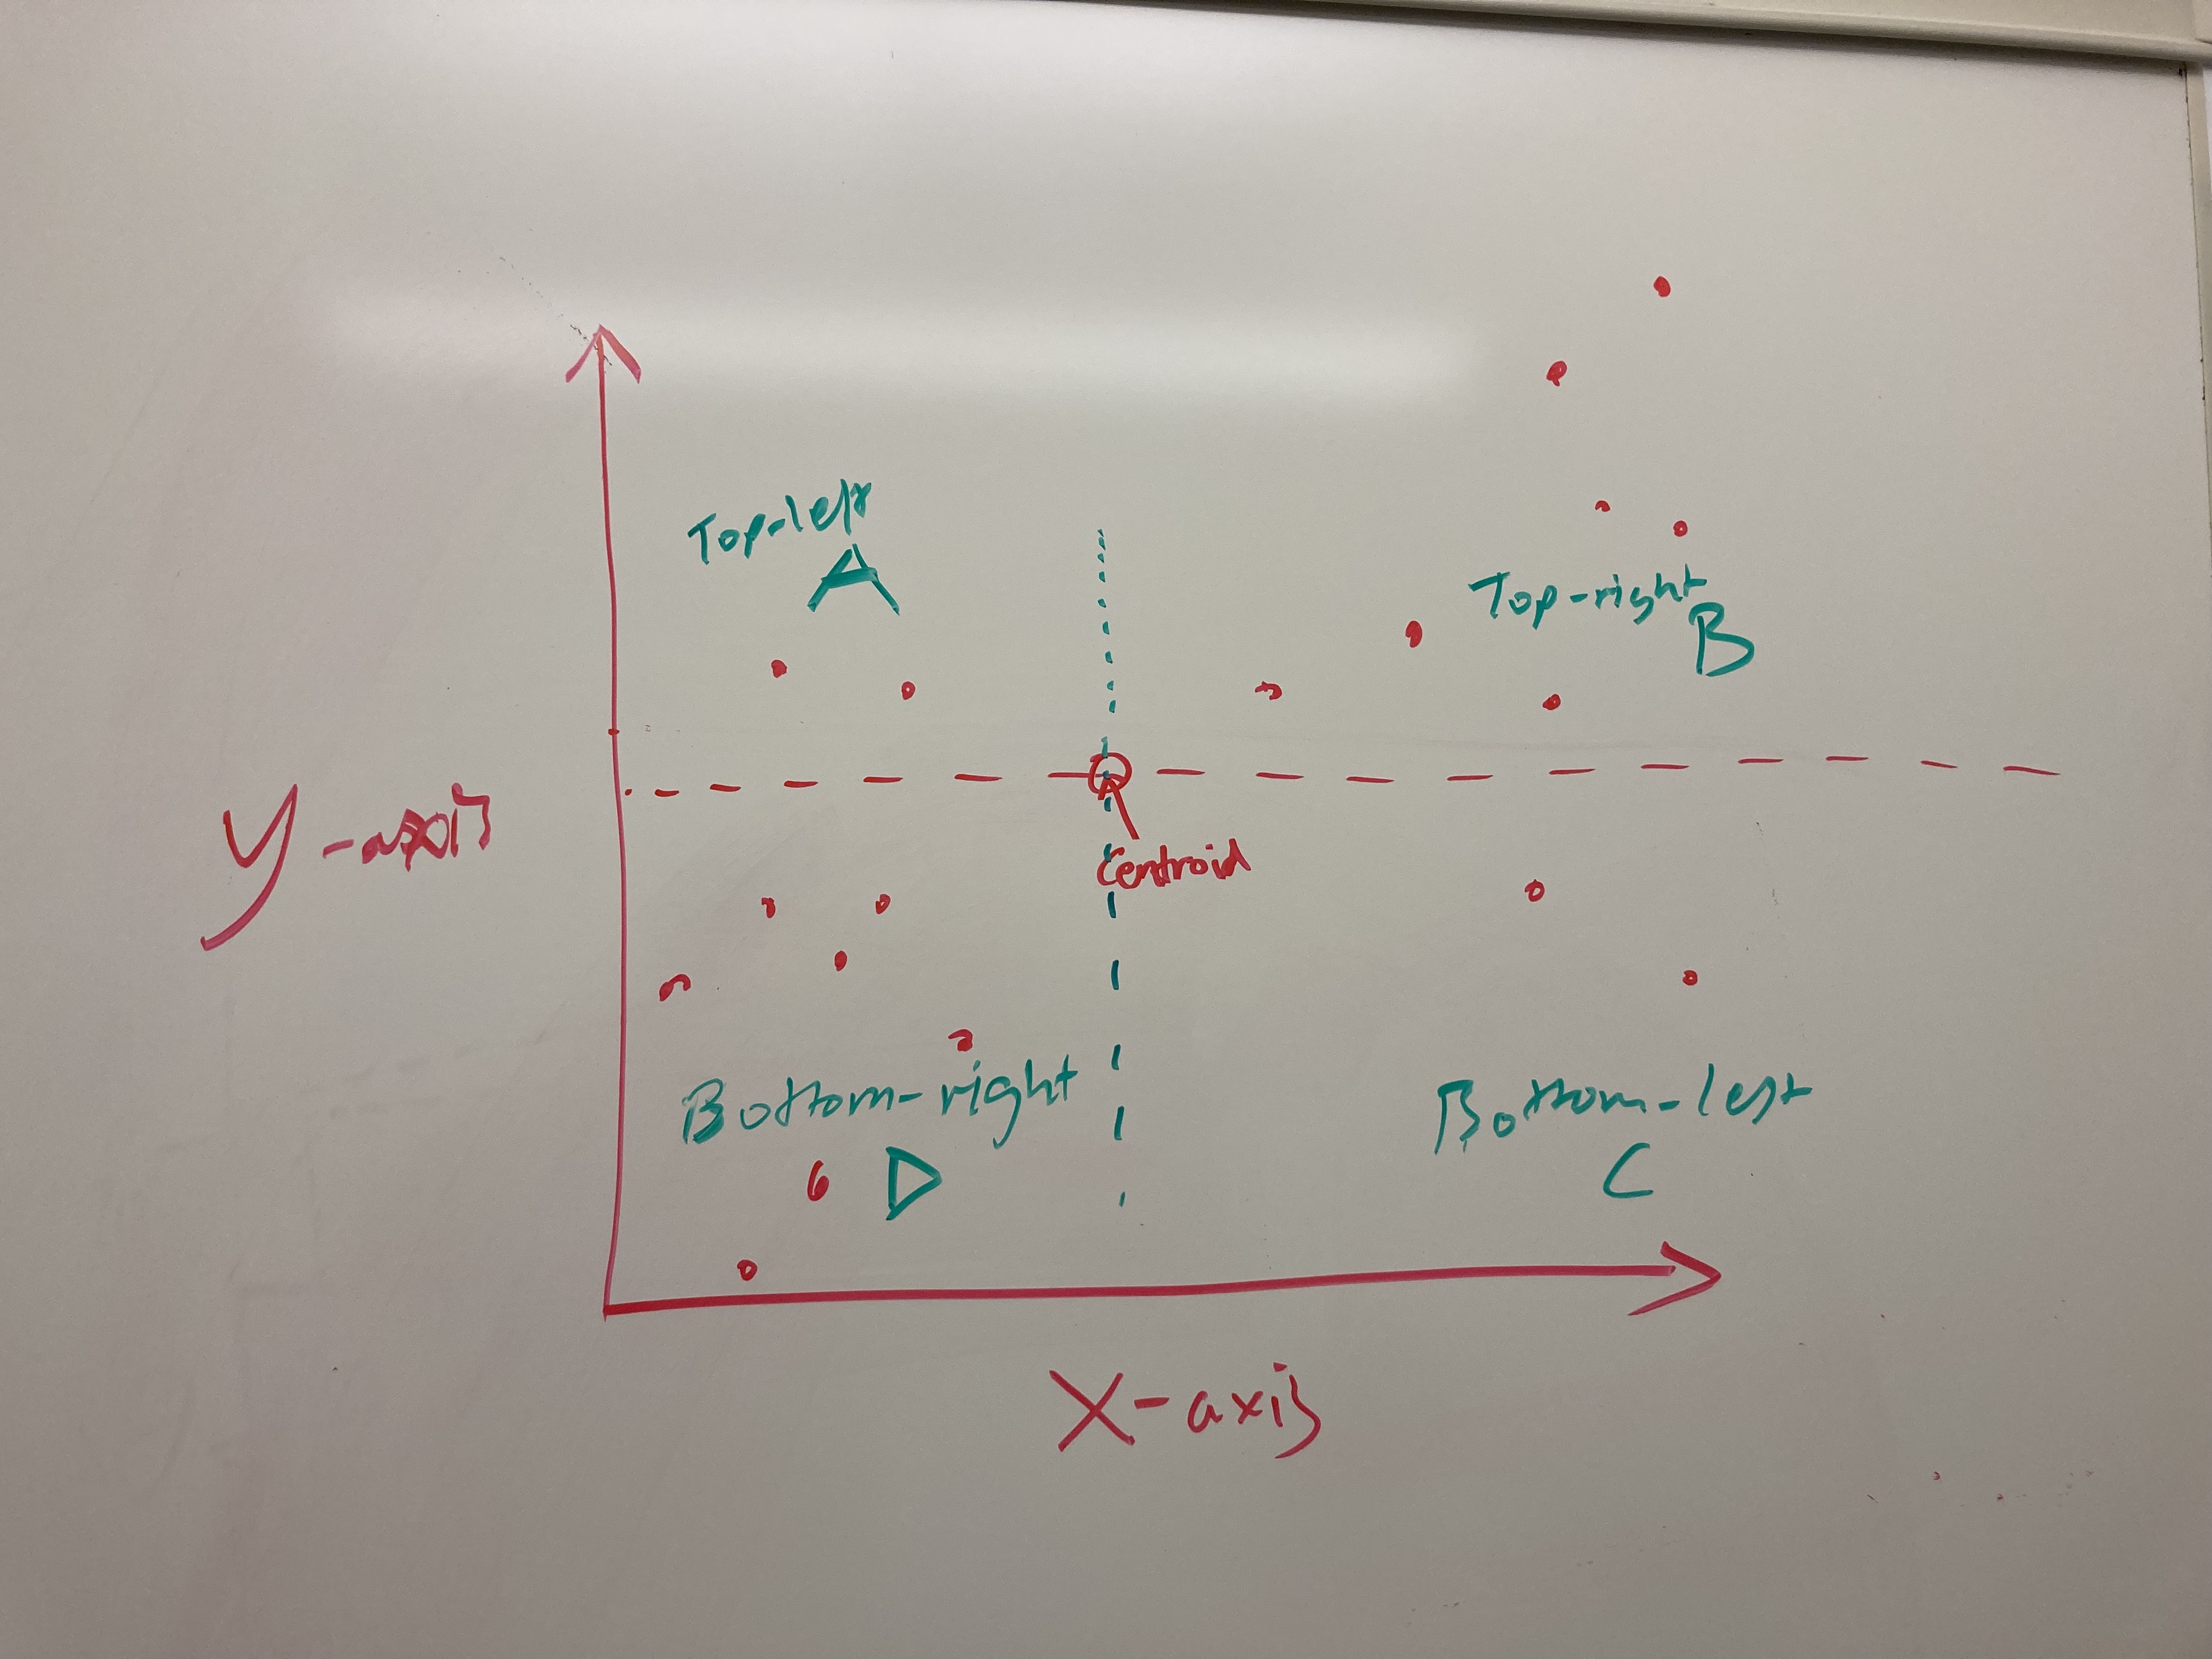 Top-left
A
Top-right
B
Y-axis
Centroid
Bottom-right
D
Bottom-left
C
X-axis